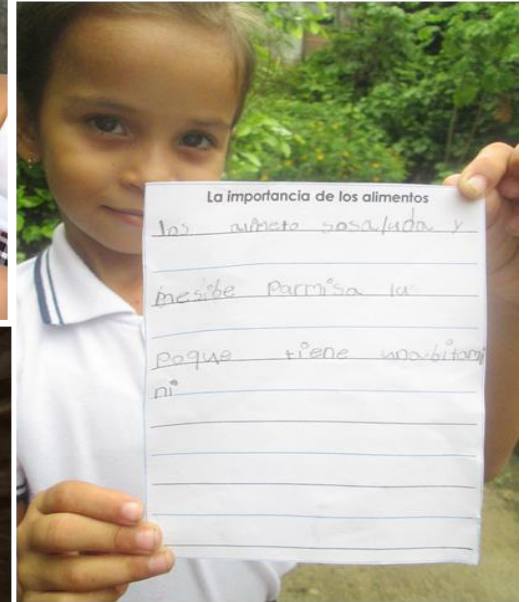 La importancia de los alimentos
los alimeto sosaluda y
mesibe parmisa lu
poque tiene una bitami
ni